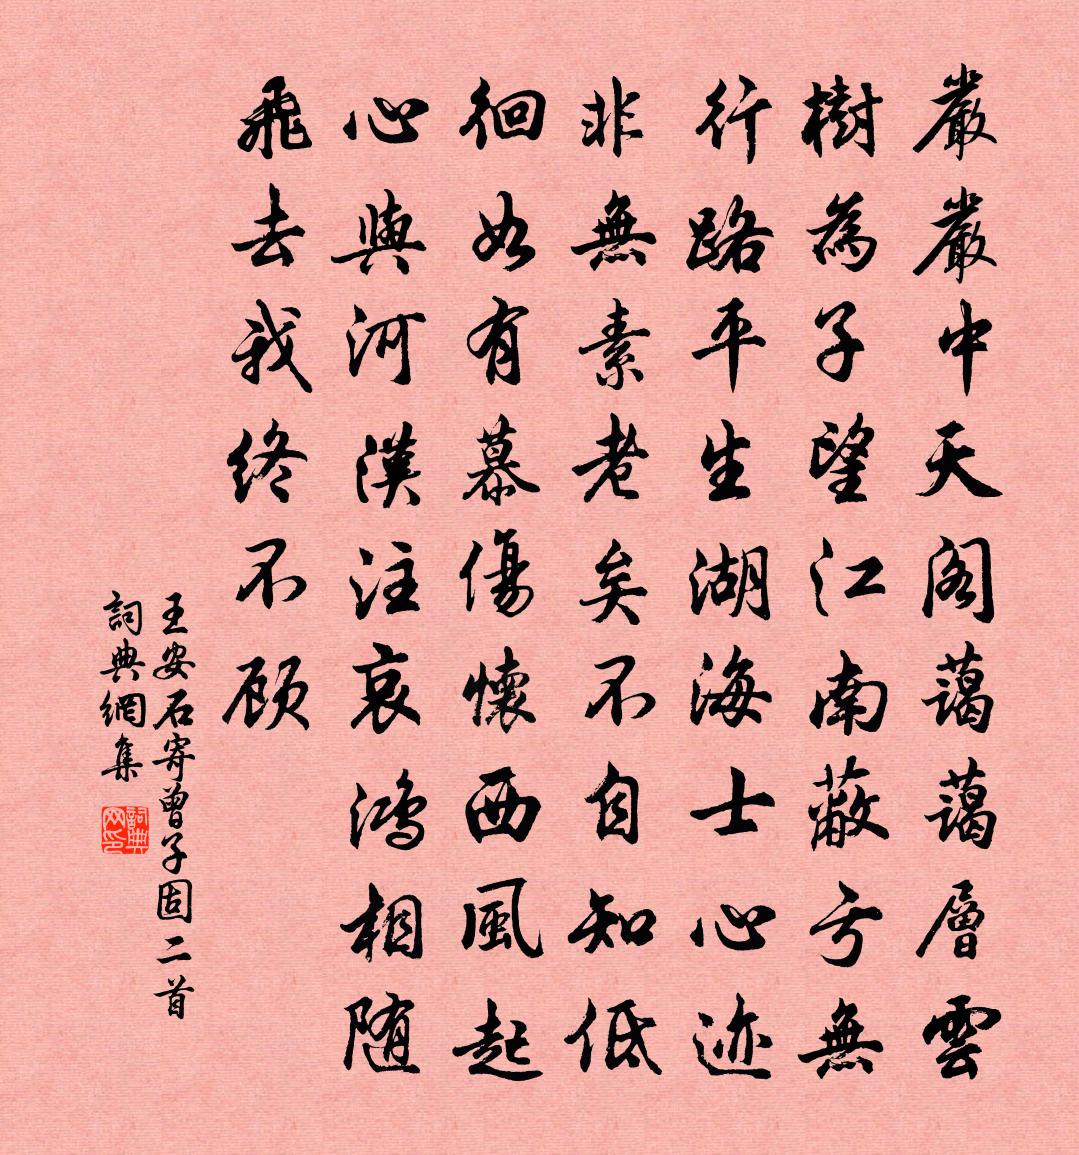 嚴嚴中天閣藹藹層雲
樹為子望江南蔽亏無
行路平生湖海士心迹
非無素老矣不自知低
徊如有慕傷懷西風起
心與河漢注哀鴻相随
飛去我终不顾
王安石寄曾子固二首
詞典網集
詞典网印